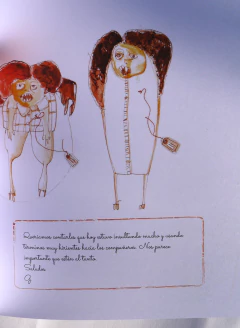 Queríamos contarles que hoy estuvo insultando mucho y usando
términos muy hirientes hacia los compañeros. Nos parece
importante que estén al tanto.
Saludos